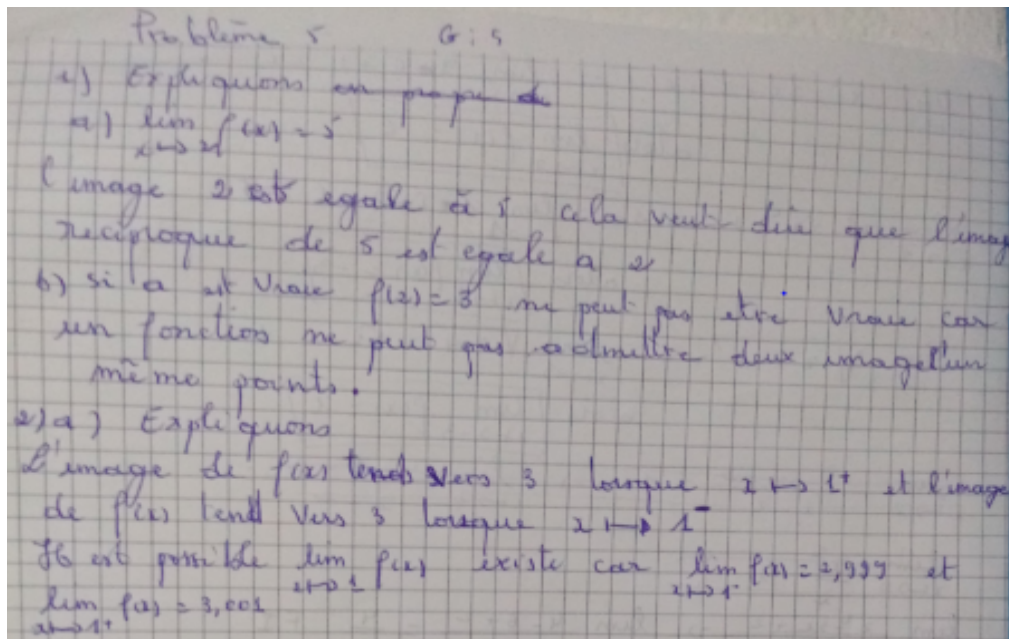 Problème 5 G: 5
1) Expliquons en propre de
a) lim f(x) = 5
x↦2
l'image 2 est egale à 5 cela veut dire que l'imag
reciproque de 5 est egale a 2
b) si a est vraie f(2) = 3 ne peut pas etre vraie car
un fonction ne peut pas admettre deux image l'un
même points.
2) a) Expliquons
L'image de f(x) tend vers 3 lorsque x ↦ 1⁺ et l'image
de f(x) tend vers 3 lorsque x ↦ 1⁻
Il est possible lim f(x) existe car lim f(x) = 2,999 et
x↦1 x↦1⁻
lim f(x) = 3,001
x↦1⁺